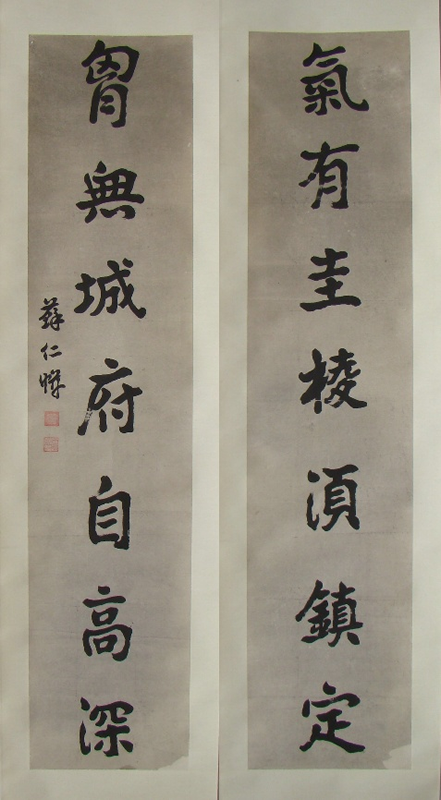 氣有圭棱湏鎮定
胷無城府自高深
蘇仁